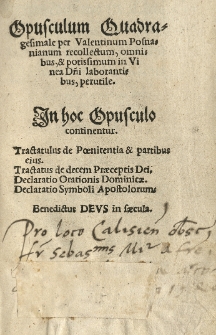 Opusculum Quadra-
gesimale per Valentinum Posna-
nianum recollectum, omni-
bus, & potissimum in Vi
nea Dñi laboranti-
bus, perutile.
In hoc Opusculo
continentur.
Tractatulus de Pœnitentia & partibus
eius.
Tractatus de decem Præceptis Dei.
Declaratio Orationis Dominicæ.
Declaratio Symboli Apostolorum.
Benedictus DEVS in sæcula.
Pro loco Calisien
fr Sebas